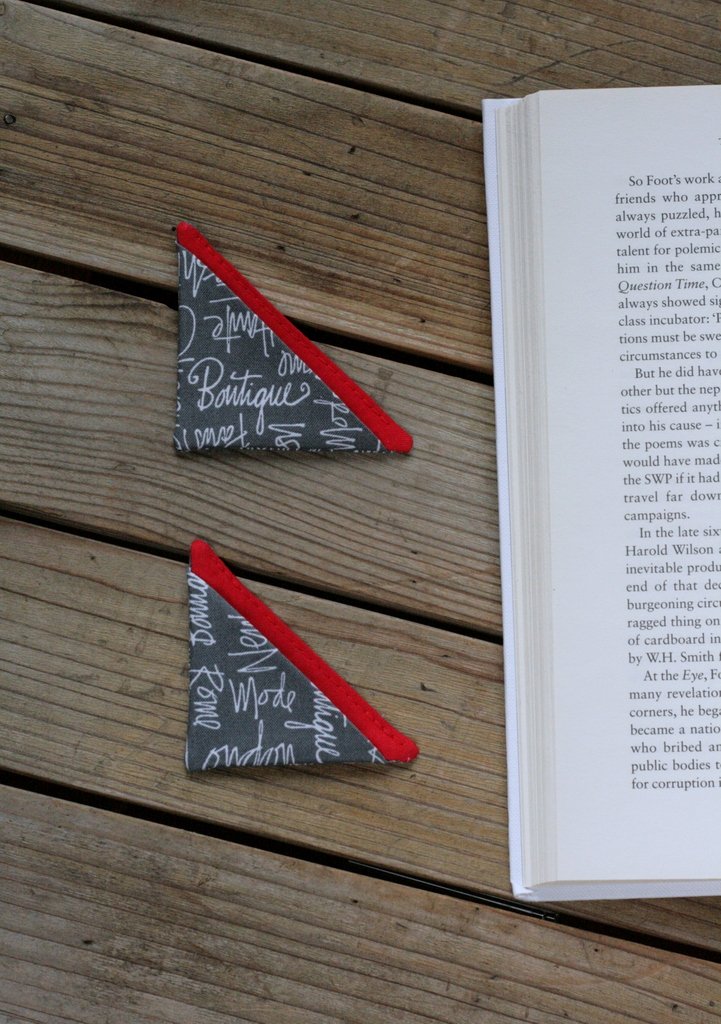 Haute
Boutique
Rome
Mode
London
So Foot's work
friends who appr
always puzzled, h
world of extra-pa
talent for polemic
him in the same
Question Time, C
always showed sig
class incubator: 'P
tions must be swe
circumstances to
But he did have
other but the nep
tics offered anyth
into his cause – i
the poems was c
would have made
the SWP if it had
travel far down
campaigns.
In the late six
Harold Wilson a
inevitable produ
end of that dec
burgeoning circu
ragged thing on
of cardboard in
by W.H. Smith f
At the Eye, Fo
many revelation
corners, he bega
became a natio
who bribed an
public bodies t
for corruption i